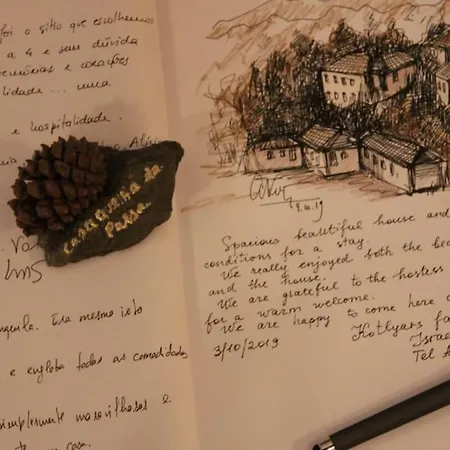 foi o sítio que escolhemos
a 4 e sem dúvida
memórias e corações
lidade... uma
e hospitalidade.
Casa Quinta da
Passa
quila. Era mesmo isto
e engloba todas as comodidades
simplesmente maravilhosas e
casa.
4.10.19
Spacious beautiful house and
conditions for a stay.
We really enjoyed both the
and the house.
We are grateful to the hostess
for a warm welcome.
We are happy to come here
3/10/2019 Kotlyars
Israe
Tel A